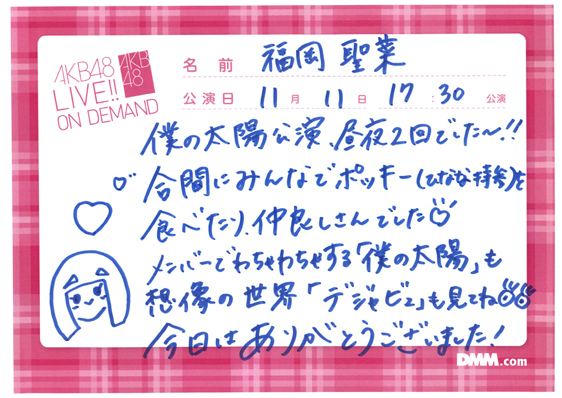 AKB48
LIVE!!
ON DEMAND
AKB
48
名前 福岡 聖菜
公演日 11月 11日 17:30 公演
僕の太陽公演、昼夜2回でした〜!!
合間にみんなでポッキー(ひなな持参)を
食べたり、仲良しさんでした
メンバーでわちゃわちゃする「僕の太陽」も
想像の世界「デジャビュ」も見てね
今日はありがとうございました!
DMM.com